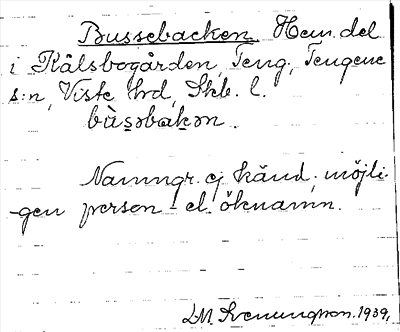 Bussebacken Hem. del
i Kålsbogården, Teng, Tengene
s:n, Viste hrd, Skb. l.
bùsəbakən.
Namngr. ej känd; möjli-
gen person- el. öknamn.
1939.